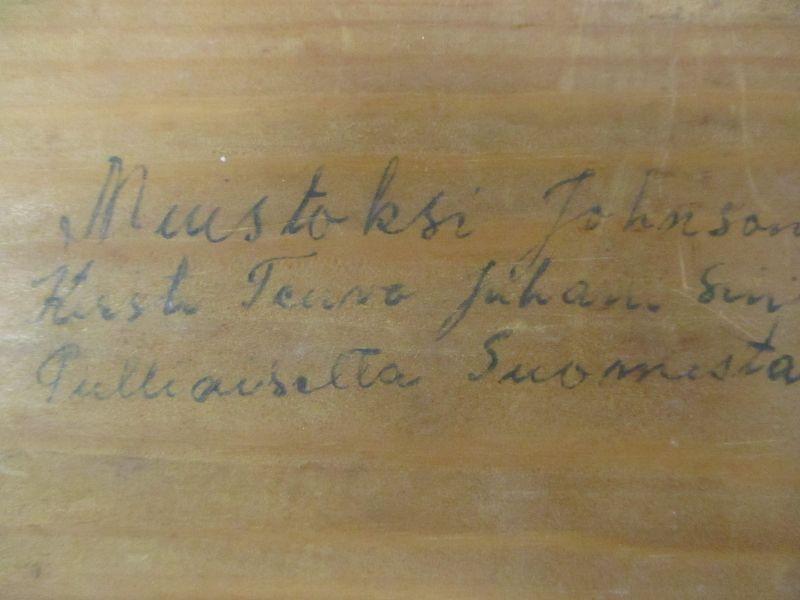 Muistoksi Johnson
Kirsti Teuvo Juhani Sin
Pulliaiselta Suomesta